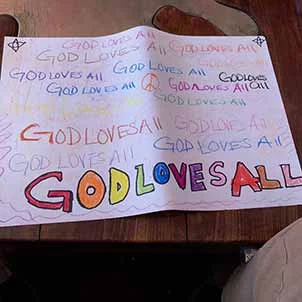 GOD LOVES All
GOD LOVES All
GOD LOVES All
GOD LOVES All
GOD LOVES All
GOD LOVES All
GOD LOVES All
GOD LOVES All
GOD LOVES All
GOD LOVES All
GOD LOVES All
GOD LOVES All
GOD LOVES All
GOD LOVES ALL